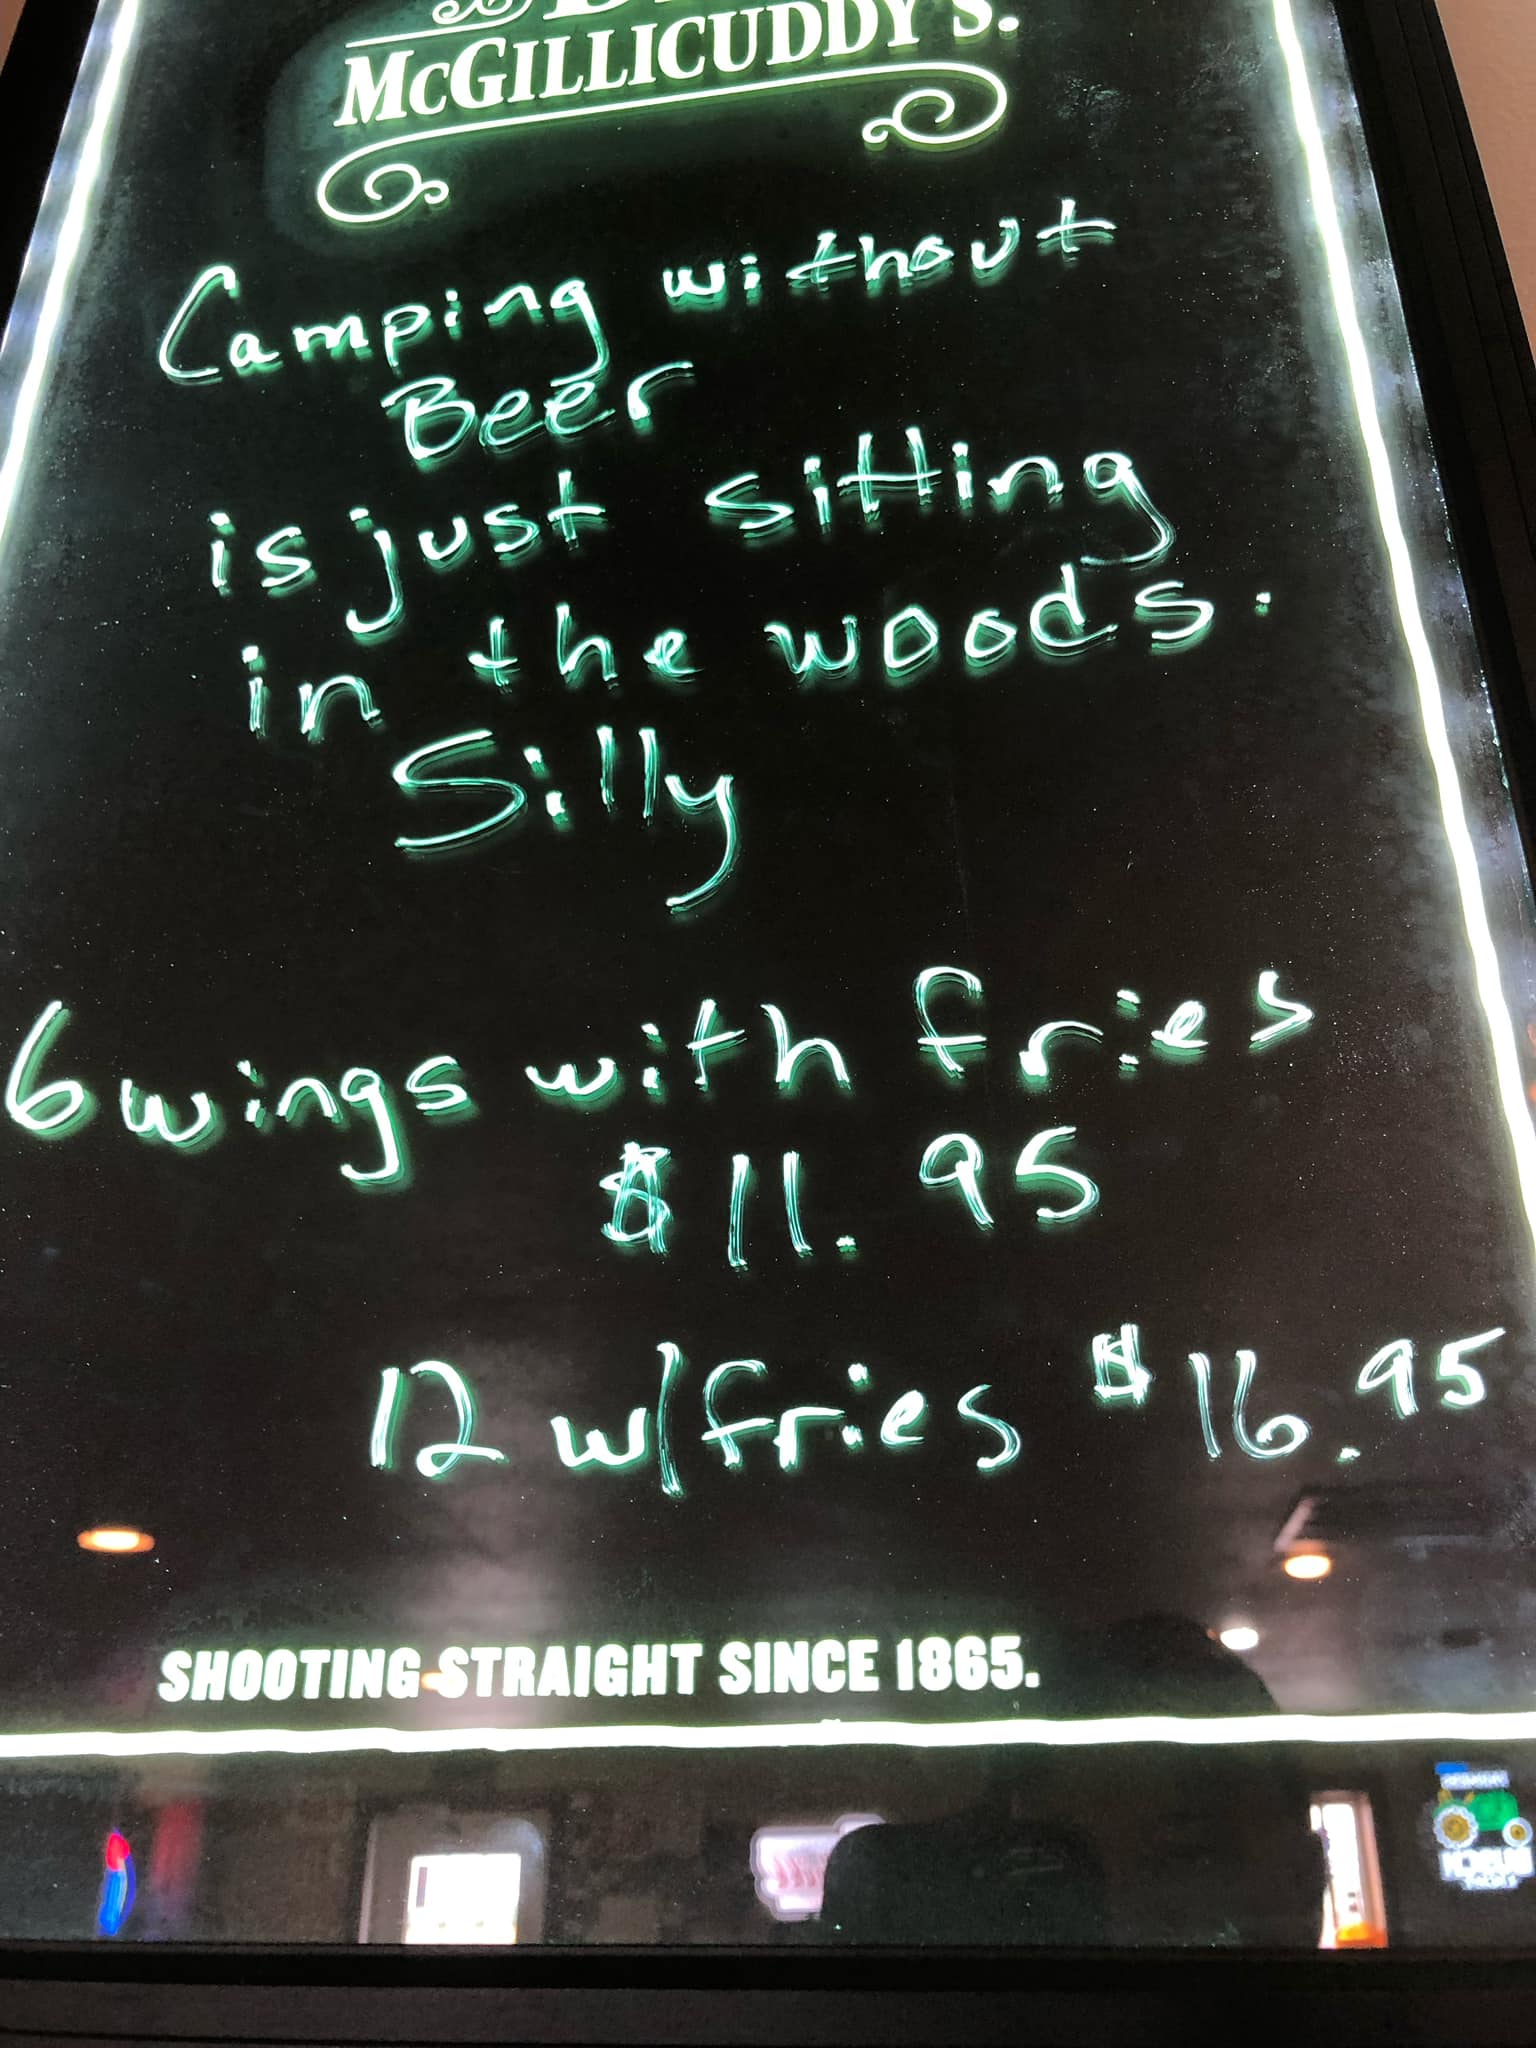 McGILLICUDDY'S.
Camping without
Beer
is just sitting
in the woods.
Silly
6 wings with fries
$11.95
12 w/fries $16.95
SHOOTING STRAIGHT SINCE 1865.